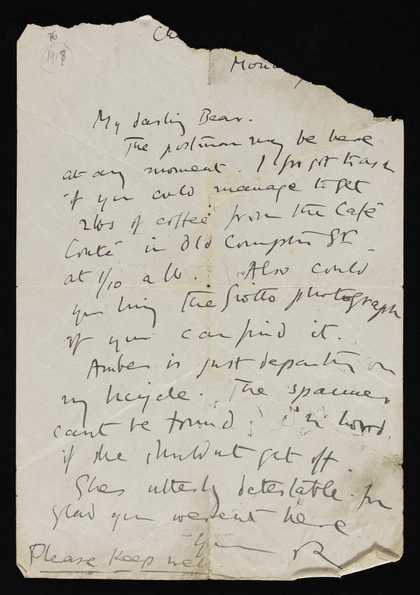 76
1918
Monday
My darling Bear.
The postman may be here
at any moment. I forgot to ask
if you could manage to get
2lbs of coffee from the Café
Conté in Old Compton St
at 1/10 a lb. Also could
you bring the Giotto photograph
if you can find it.
Amber is just departing on
my bicycle. The spanner
cant be found;
if she should not get off.
Shes utterly detestable. Im
glad you werent here
R
Please keep